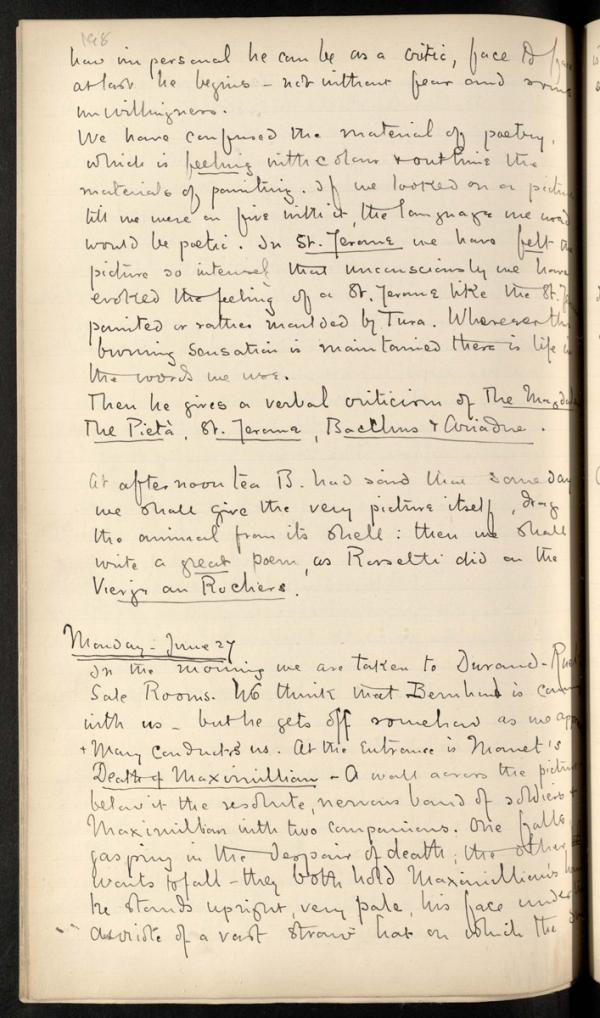 198
how impersonal he can be as a critic, face to face
at last he begins – not without fear and some
unwillingness.
We have confused the material of poetry,
which is feeling with colour & outline the
materials of painting. If we looked on a picture
till we were on fire with it, the language we used
would be poetic. In St. Jerome we have felt the
picture so intensely that unconsciously we have
evoked the feeling of a St. Jerome like the St. Je
painted or rather moulded by Tura. Wherever the
burning sensation is maintained there is life in
the words we use.
Then he gives a verbal criticism of The Magdal
The Pietà, St. Jerome, Bacchus & Ariadne.
At afternoon tea B. had said that some day
we shall give the very picture itself, drag
the animal from its shell: then we shall
write a great poem, as Rossetti did on the
Vierge au Rochers.
Monday – June 27
In the morning we are taken to Durand-Rue
Sale Rooms. We think that Bernhard is com
with us – but he gets off somehow as we app
& Mary conducts us. At the entrance is Monet's
Death of Maximillian – A wall across the picture
below it the resolute, nervous band of soldiers &
Maximillian with two companions. One falls
gasping in the despair of death, the other
wants to fall – they both hold Maximillian's
he stands upright, very pale, his face under
of a vast straw hat on which the